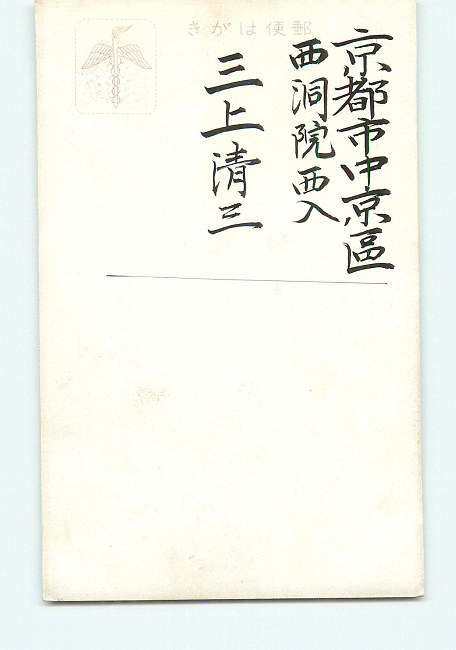 きがは便郵
京都市中京區
西洞院西入
三上清三